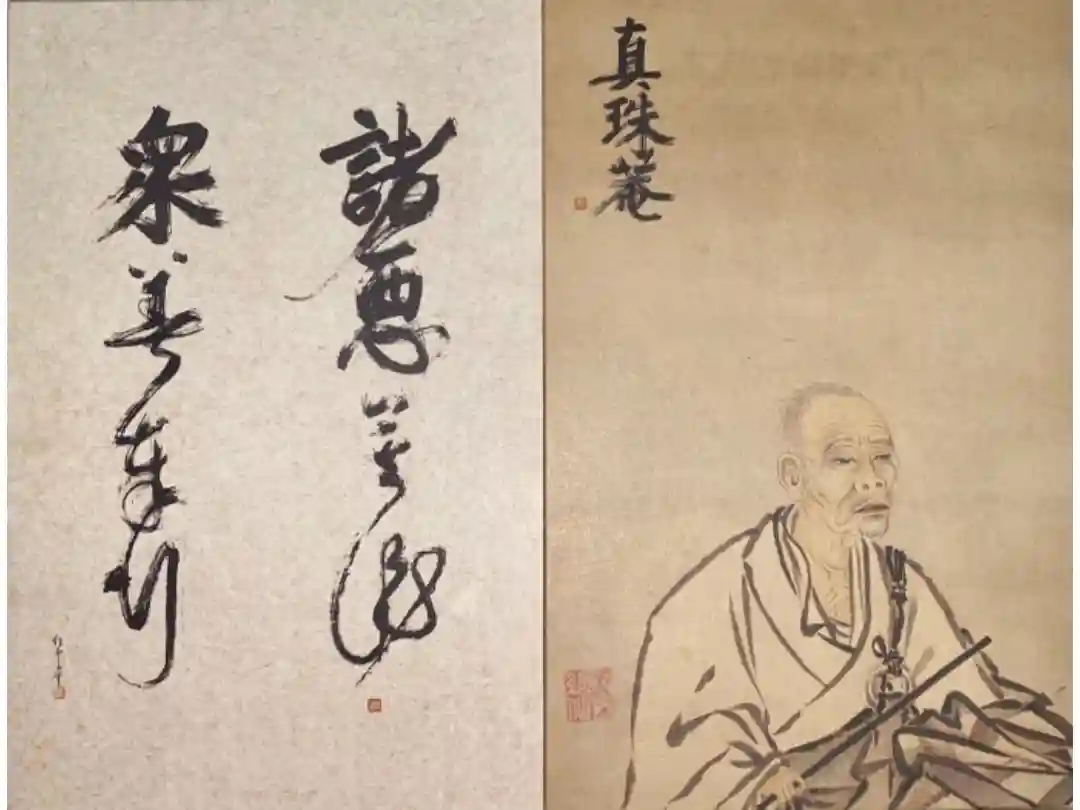 真珠菴
諸悪莫作
衆善奉行